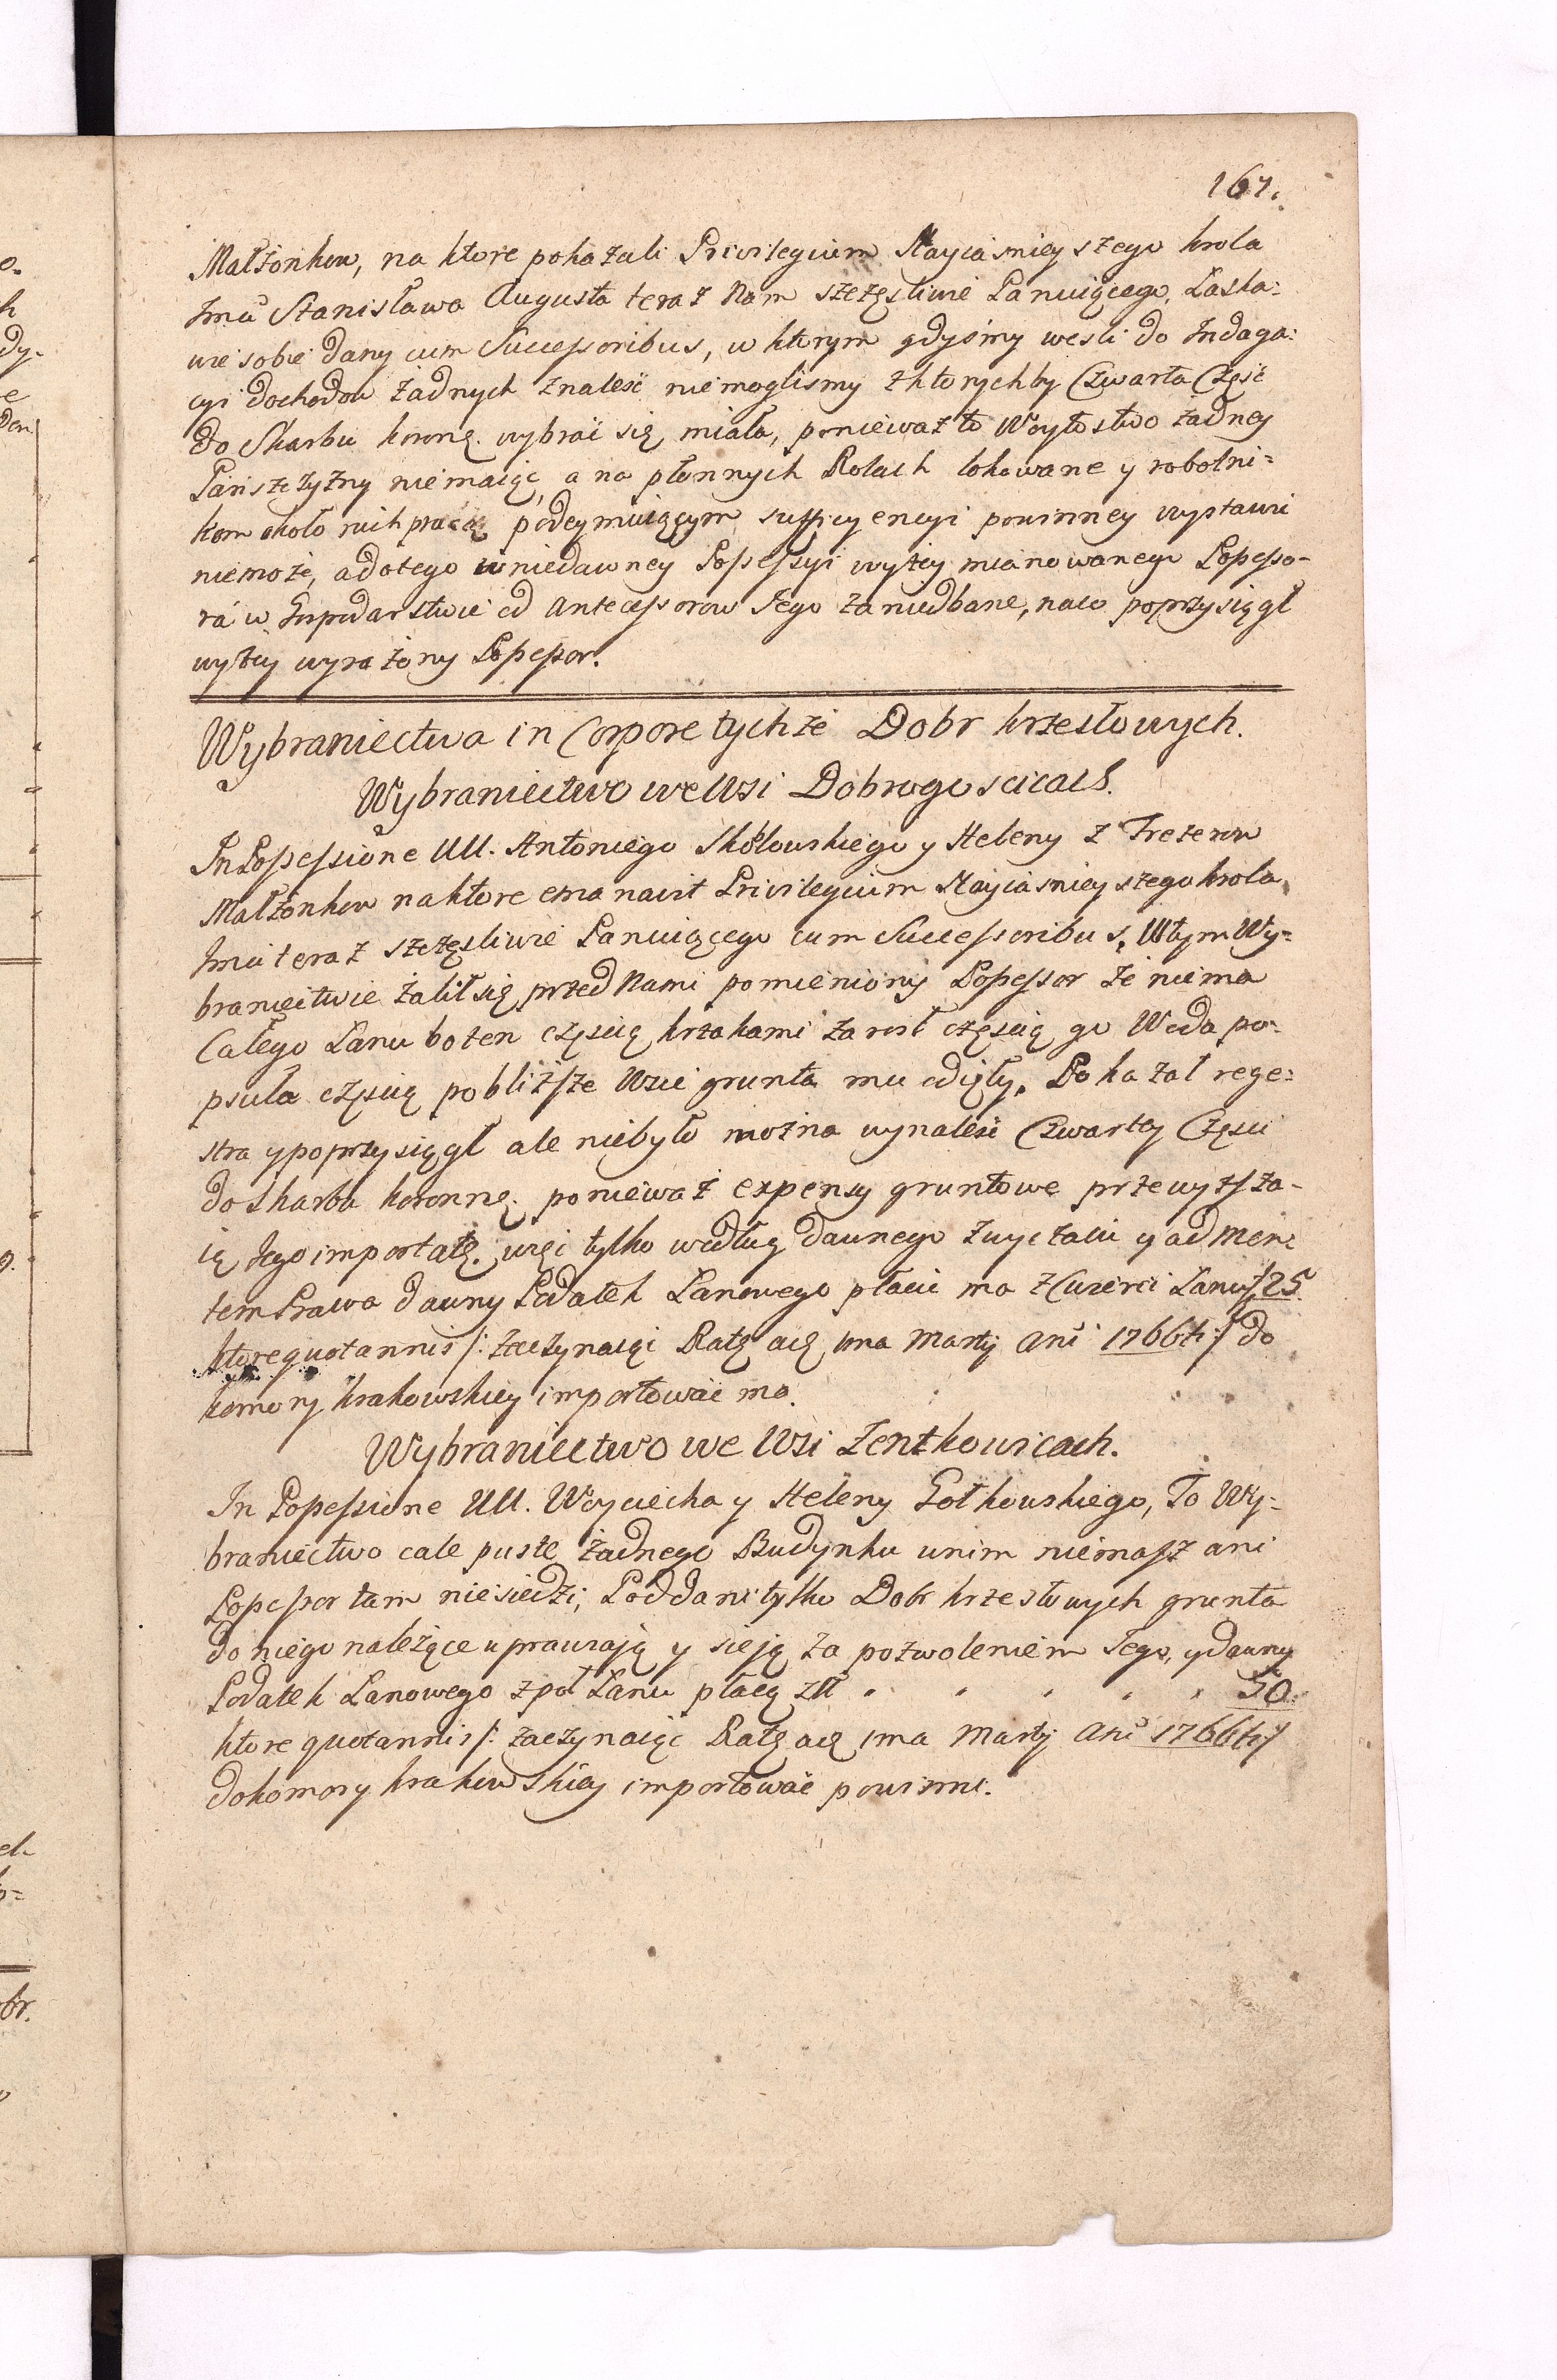 167.
Małżonkow, na ktore pokazali Privilegium Nayiasnieyszego krola
Jmci Stanisława Augusta teraz Nam szczęsliwie Panuiącego, Łaska:
wie sobie dany cum Successoribus, w ktorym gdysmy weszli do Indaga:
cyi dochodow żadnych znaleść niemoglismy z ktorychby Czwarta Część
do Skarbu koronę. wybrać się miała, ponieważ to Woytostwo żadney
Pańszczyzny niemaiąc, a na płonnych Rolach lokowane y robotni=
kom około nich pracą podeymuiącym sufficyencyi powinney wystawić
niemoże, adotego w niedawney Possessyi wyżey mianowanego Possesso-
ra w Gospodarstwie od Antecessorow Jego zaniedbane, naco poprzysiągł
wyżey wyrażony Possessor.
Wybraniectwa in Corpore tychże Dobr krzesłowych.
Wybraniectwo we Wsi Dobrogoscicach.
In Possessione UU. Antoniego Skołowskiego y Heleny z Trezerow
Małżonkow naktore emanavit Privilegium Nayiasnieyszego krola
Jmci teraz szczęsliwie Panuiącego cum Successoribus, Wtym Wy=
braniectwie żalił się przed Nami pomieniony Possessor że niema
Całego Łanu bo ten częscią krzakami zarosł częscią go Woda po-
psuła częscią pobliższe Wsie grunta mu odięły. Pokazał rege=
stra y poprzysiągł ale niebyło można wynaleść Czwartey Częsci
do Skarbu koronnę. ponieważ expensy gruntowe przewyższa-
ią Jego importatę. więc tylko według dawnego zwyczaiu y ad men:
tem Prawa dawny Podatek Łanowego płacić ma z Cwierci Łanu zł 25.
ktore quotannis /: zaczynaiąc Ratę a 1ma Martij Anni 1766ti :/ do
komory krakowskiey importować ma.
Wybraniectwo we Wsi Zentkowicach.
In Possessione UU. Woyciecha y Heleny Gołkowskiego, To Wy=
braniectwo całe puste żadnego Budynku w nim niemasz ani
Possessor tam niesiedzi, Poddani tylko Dobr krzesłowych grunta
do niego należące uprawiają y sieją za pozwoleniem Jego, y dawny
Podatek Łanowego z poł Łanu płacą złł . . . . . 50.
ktore quotannis /: zaczynaiąc Ratę a 1ma Martij Anni 1766ti :/
do komory krakowskiey importować powinni.